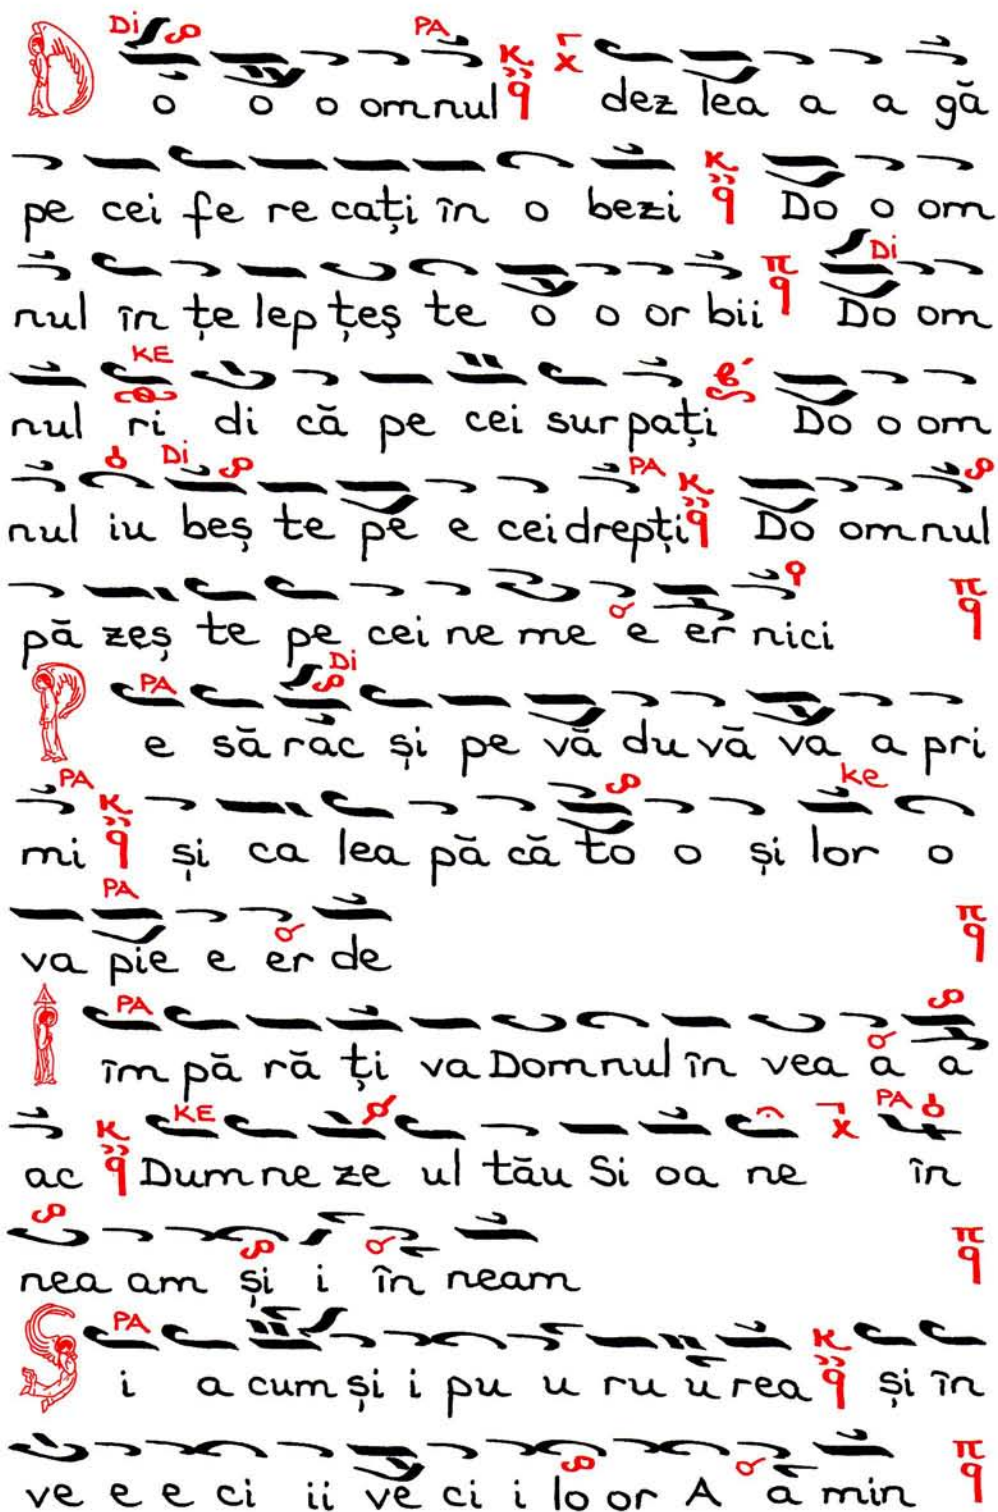 Di PA
D o o o omnul dez lea a a gă
pe cei fe re cați în o bezi Do o om
nul în țe lep țeș te o o or bii Do om
Di
KE
nul ri di că pe cei sur pați Do o om
Di PA
nul iu beș te pe e cei drepți Do omnul
pă zeș te pe cei ne me e er nici
PA Di
P e să rac și pe vă du vă va a pri
PA ke
mi și ca lea pă că to o și lor o
PA
va pie e er de
PA
Î îm pă ră ți va Domnul în vea a a
KE PA
ac Dum ne ze ul tău Si oa ne în
nea am și i în neam
PA
S i a cum și i pu u ru u rea și în
ve e e ci ii ve ci i lo or A a min